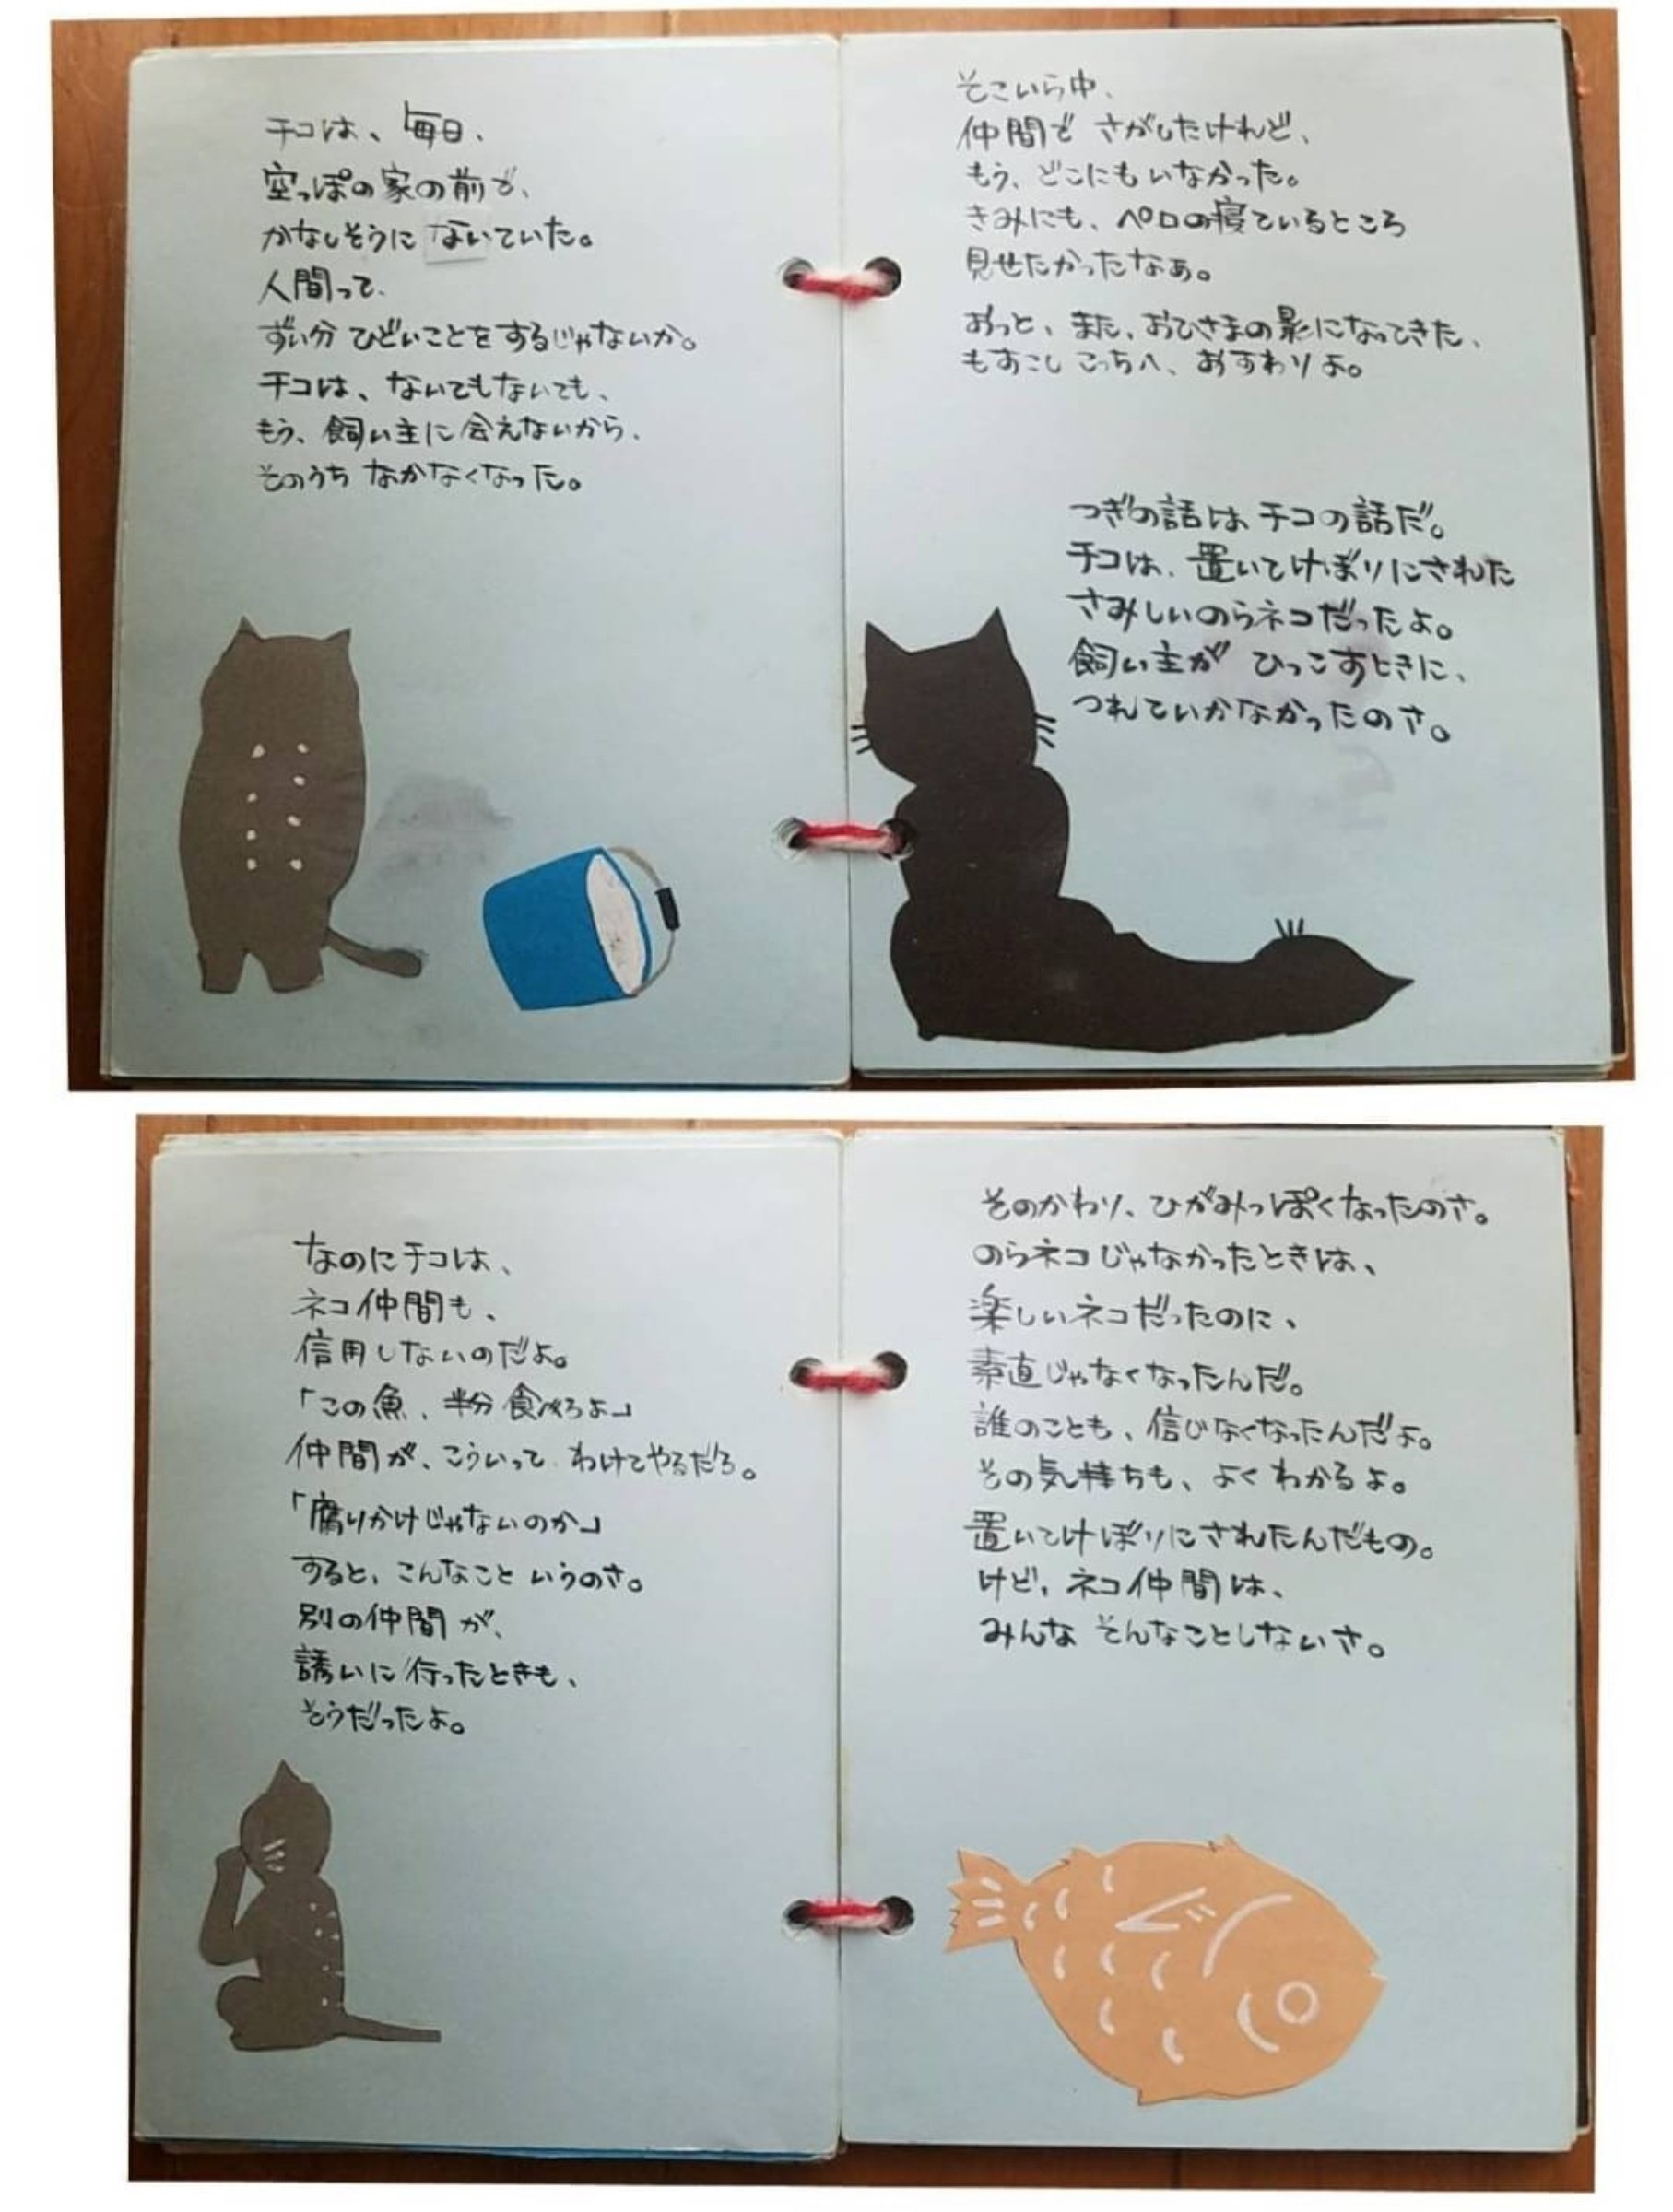 そこいら中、
仲間で さがしたけれど、
もう、どこにもいなかった。
きみにも、ペロの寝ているところ
見せたかったなぁ。
おっと、また、おひさまの影になってきた、
もすこし こっちへ、おすわりよ。
つぎの話は チコの話だ。
チコは、置いてけぼりにされた
さみしいのらネコだったよ。
飼い主が ひっこすときに、
つれていかなかったのさ。
チコは、毎日、
空っぽの家の前で、
かなしそうに ないていた。
人間って、
ずい分 ひどいことをするじゃないか。
チコは、ないてもないても、
もう、飼い主に会えないから、
そのうち なかなくなった。
そのかわり、ひがみっぽくなったのさ。
のらネコじゃなかったときは、
楽しいネコだったのに、
素直じゃなくなったんだ。
誰のことも、信じなくなったんだよ。
その気持ちも、よくわかるよ。
置いてけぼりにされたんだもの。
けど、ネコ仲間は、
みんな そんなことしないさ。
なのにチコは、
ネコ仲間も、
信用しないのだよ。
「この魚、半分食べろよ」
仲間が、こういって わけてやるだろ。
「腐りかけじゃないのか」
すると、こんなこと いうのさ。
別の仲間が、
誘いに行ったときも、
そうだったよ。